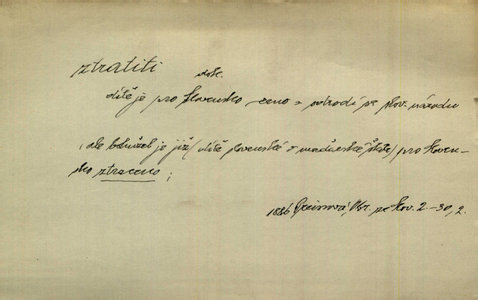 ztratiti dok.
dítě je pro Slovensko ceno = odrodí se slov. národu
(ale bohužel je již (dítě slovenské v maďarské škole) pro Sloven-
sko ztraceno;
1886 , Obr. ze Slov. 2.-30, 2.